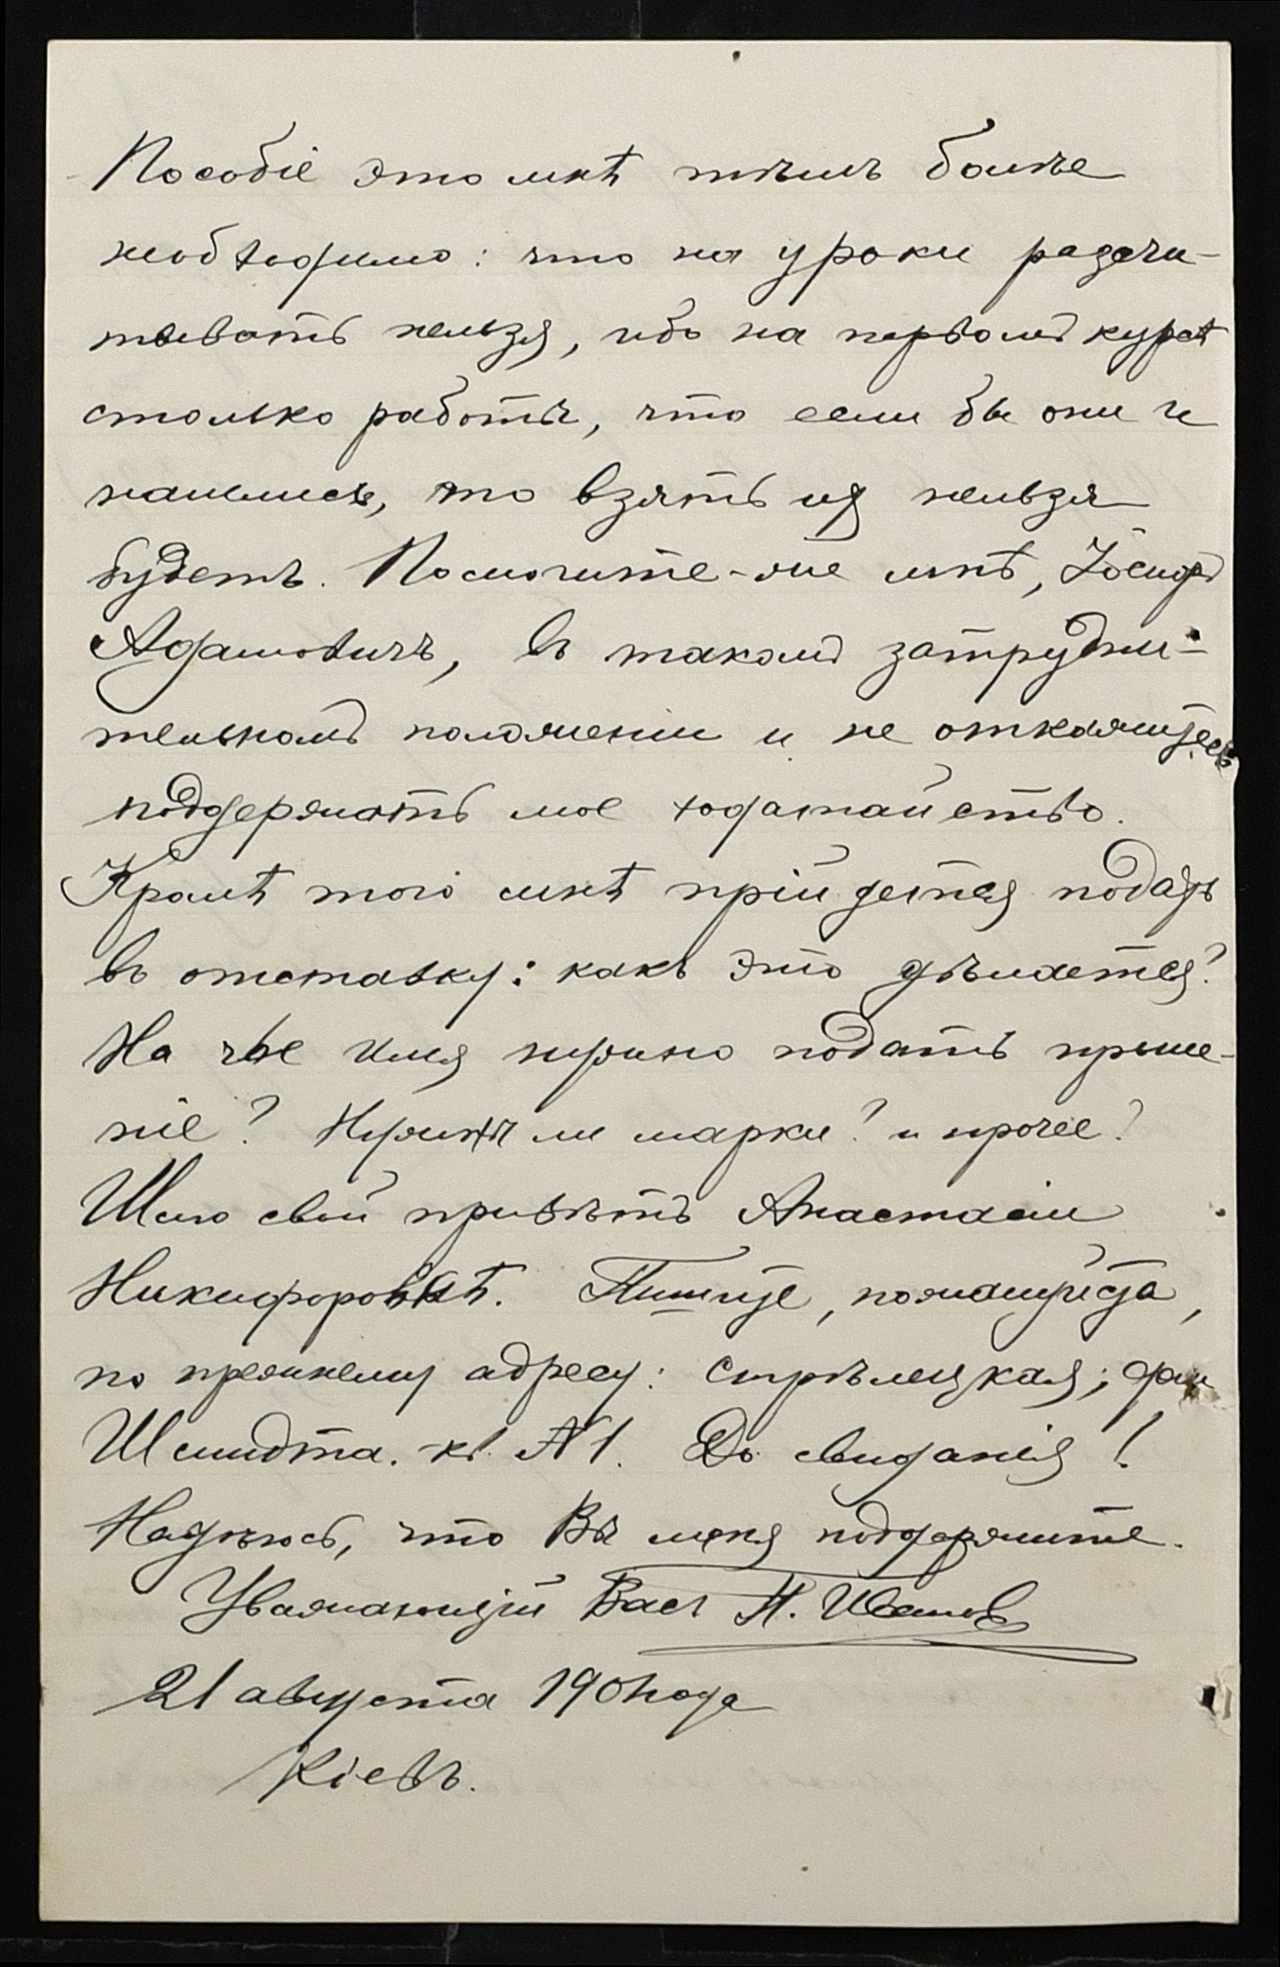 Пособіе это мнѣ тѣмъ болѣе
необходимо: что на уроки разсчи-
тывать нельзя, ибо на первомъ курсѣ
столько работы, что если бы они и
нашлись, то взять их нельзя
будетъ. Помогите-же мнѣ, Іосифъ
Адамовичъ, въ такомъ затрудни-
тельномъ положеніи и не откажитесь
поддержать мое ходатайство.
Кромѣ того мнѣ прійдется подать
въ отставку: какъ это дѣлается?
На чье имя нужно подать проше-
ніе? Нужны ли марки? и прочее?
Шлю свой привѣтъ Анастасіи
Никифоровнѣ. Пишите, пожалуйста,
по прежнему адресу: Стрѣлецкая, дом
Шмидта. кв. № 1. До свиданія!
Надѣюсь, что Вы меня поддержите.
Уважающій Васъ П. Иванов
21 августа 1901 года
Кіевъ.